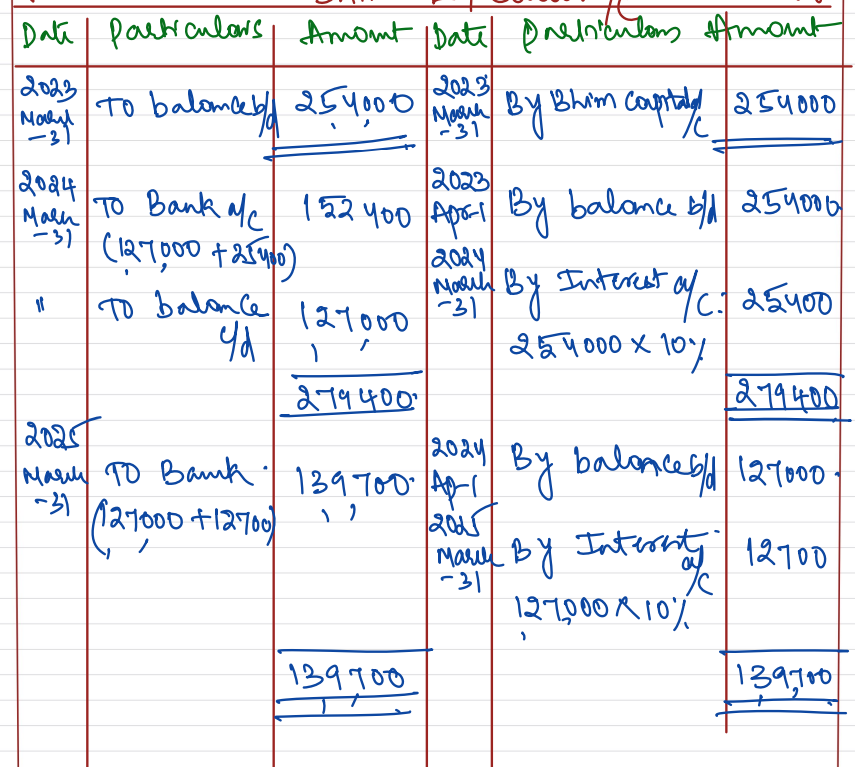 Date Particulars Amount Date Particulars Amount
2023 March -31 To balance b/d 254000 2023 March -31 By Bhim capital a/c 254000
2024 March -31 To Bank a/c 152400 2023 Apr-1 By balance b/d 254000
(127,000 + 25400) 2024 March -31 By Interest a/c. 25400
" To balance c/d 127000 254000 x 10%
279400 279400
2025 March -31 To Bank 139700 2024 Ap-1 By balance b/d 127000
(127000 + 12700) 2025 March -31 By Interest a/c 12700
127,000 x 10%
139700 139,700